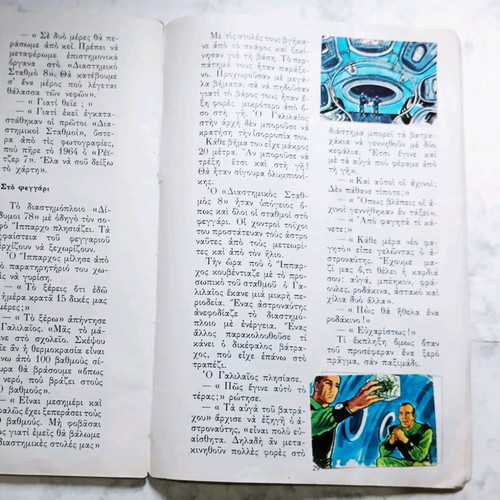 — «Σὲ δυὸ μέρες θὰ πε-
ράσωμε ἀπὸ κεῖ. Πρέπει νὰ
μεταφέρωμε ἐπιστημονικὰ
ὄργανα στὸ «Διαστημικὸ
Σταθμὸ 8». Θὰ κατέβουμε
σ' ἕνα μέρος ποὺ λέγεται
θάλασσα τῶν νεφῶν».
— «Γιατὶ θεῖε;»
— «Γιατὶ ἐκεῖ ἐγκατα-
στάθηκαν οἱ πρῶτοι «Δια-
στημικοὶ Σταθμοί», ὕστε-
ρα ἀπὸ τὶς φωτογραφίες,
ποὺ πῆρε τὸ 1964 ὁ «Ρέϊ-
τζερ 7». Ἔλα νὰ σοῦ δείξω
τὸ χάρτη».
Στὸ φεγγάρι
Τὸ διαστημόπλοιο «Δί-
δυμοι 78» μὲ ὁδηγὸ τὸν
Ἵππαρχο πλησιάζει. Τὰ
ἡφαίστεια τοῦ φεγγαριοῦ
ἀρχίζουν νὰ ξεχωρίζουν.
Ὁ Ἵππαρχος μίλησε ἀπὸ
παρατηρητήριό του
νὰ γυρίσῃ.
— «Τὸ ξέρεις ὅτι ἐδῶ
ἡμέρα κρατᾶ 15 δικές μας
μέρες;»
— «Τὸ ξέρω» ἀπήντησε
Γαλιλαῖος. «Μᾶς τὸ
στὸ σχολεῖο. Σκέψου
ἂν ἡ θερμοκρασία εἶναι
πάνω ἀπὸ 100 βαθμοὺς
θὰ βράσουμε «ὅπως
νερό, ποὺ βράζει στοὺς
βαθμούς».
— «Εἶναι μεσημέρι καὶ
ἔχει ξεπεράσει τοὺς
βαθμούς. Μὴ φοβᾶσαι
γιατὶ ἐμεῖς θὰ βάλωμε
διαστημικὲς στολές μας»
Μὲ τὶς στολές τους βγῆκαν
ἀπὸ τὸ σκάφος καὶ ξεκί-
νησαν γιὰ τὴ βάση. Τὸ περ-
πάτημά τους ἦταν παράξε-
νο. Προχωροῦσαν μὲ μεγά-
λα βήματα, σὰ νὰ πηδοῦσαν
γιατὶ τὸ βάρος τους ἦταν ἕξη
φορὲς μικρότερο ἀπὸ ὅ-
σο στὴ γῆ. Ὁ Γαλιλαῖος
στὴν ἀρχὴ δὲν μποροῦσε νὰ
κρατήσῃ τὴν ἰσορροπία του.
Κάθε βῆμα του εἶχε μάκρος
20 μέτρα. «Ἂν μποροῦσε νὰ
τρέξῃ ἔτσι καὶ στὴ γῆ!
Θὰ ἦταν σίγουρα ὀλυμπιονί-
κης.
Ὁ «Διαστημικὸς Σταθ-
μὸς 8» ἦταν ὑπόγειος ὅ-
πως καὶ ὅλοι οἱ σταθμοὶ στὸ
φεγγάρι. Οἱ χοντροὶ τοῖχοι
του προστάτευαν τοὺς ἀστρο-
ναῦτες ἀπὸ τοὺς μετεωρί-
τες καὶ ἀπὸ τὸν ἥλιο.
Τὴν ὥρα ποὺ ὁ Ἵππαρ-
χος κουβέντιαζε μὲ τὸ προ-
σωπικὸ τοῦ σταθμοῦ ὁ Γα-
λιλαῖος ἔκανε μιὰ μικρὴ πε-
ριοδεία. Ἕνας ἀστροναύτης
ἀνεφοδίαζε τὸ διαστημό-
πλοιο μὲ ἐνέργεια. Ἕνας
ἄλλος παρακολουθοῦσε τὶ
κάνει ὁ δικέφαλος βάτρα-
χος, ποὺ εἶχε ἐπάνω στὸ
τραπέζι.
Ὁ Γαλιλαῖος πλησίασε.
— «Πῶς ἔγινε αὐτὸ τὸ
τέρας;» ρώτησε.
— «Τὰ αὐγὰ τοῦ βατρά-
χου» ἄρχισε νὰ ἐξηγῇ ὁ ἀ-
στροναύτης, «εἶναι πολὺ εὐ-
αίσθητα. Δηλαδὴ ἂν μετα-
κινηθοῦν πολλὲς φορὲς στὸ
διάστημα μπορεῖ τὰ βατρα-
χάκια νὰ γεννηθοῦν μὲ δύο
κεφάλια. Ἔτσι ἔγινε καὶ
μὲ τὰ αὐγὰ ποὺ φέραμε ἀπὸ
τὴ γῆ.
— «Καὶ αὐτοὶ οἱ ἀχινοί;
Δὲν πάθανε τίποτε;»
— «Ὅπως βλέπεις οἱ ἀ-
χινοὶ γεννήθηκαν ἐν τάξει».
— «Ἀπὸ φαγητὰ τὶ κά-
νετε;»
— «Κάθε μέρα νέο φα-
γητὸ» εἶπε γελῶντας ὁ ἀ-
στροναύτης. Ἔχουμε μα-
ζί μας ὅ,τι θέλει ἡ καρδιά
σου: αὐγά, μπέηκον, φρά-
ουλες, ροδάκινα, ἀστακὸ καὶ
χίλια δυὸ ἄλλα».
— «Πῶς θὰ ἤθελα ἕνα
ροδάκινο!»
— «Εὐχαρίστως!»
Τὶ ἔκπληξη ὅμως ὅταν
τοῦ προσέφεραν ἕνα ξερὸ
πρᾶγμα, σὰν παξιμάδι.